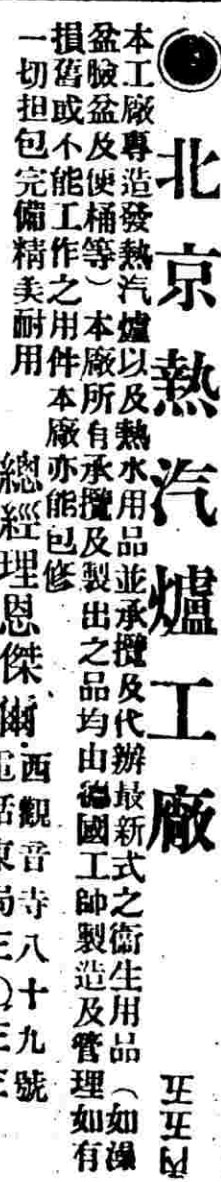 北京熱汽爐工廠
五五丙
本工廠專造發熱汽爐以及熱水用品並承攬及代辦最新式之衞生用品（如澡
盆臉盆及便桶等）本廠所有承攬及製出之品均由德國工師製造及管理如有
損舊或不能工作之用件本廠亦能包修
一切担包完備精美耐用
總經理恩傑爾
西觀音寺八十九號
電話東局三〇三三